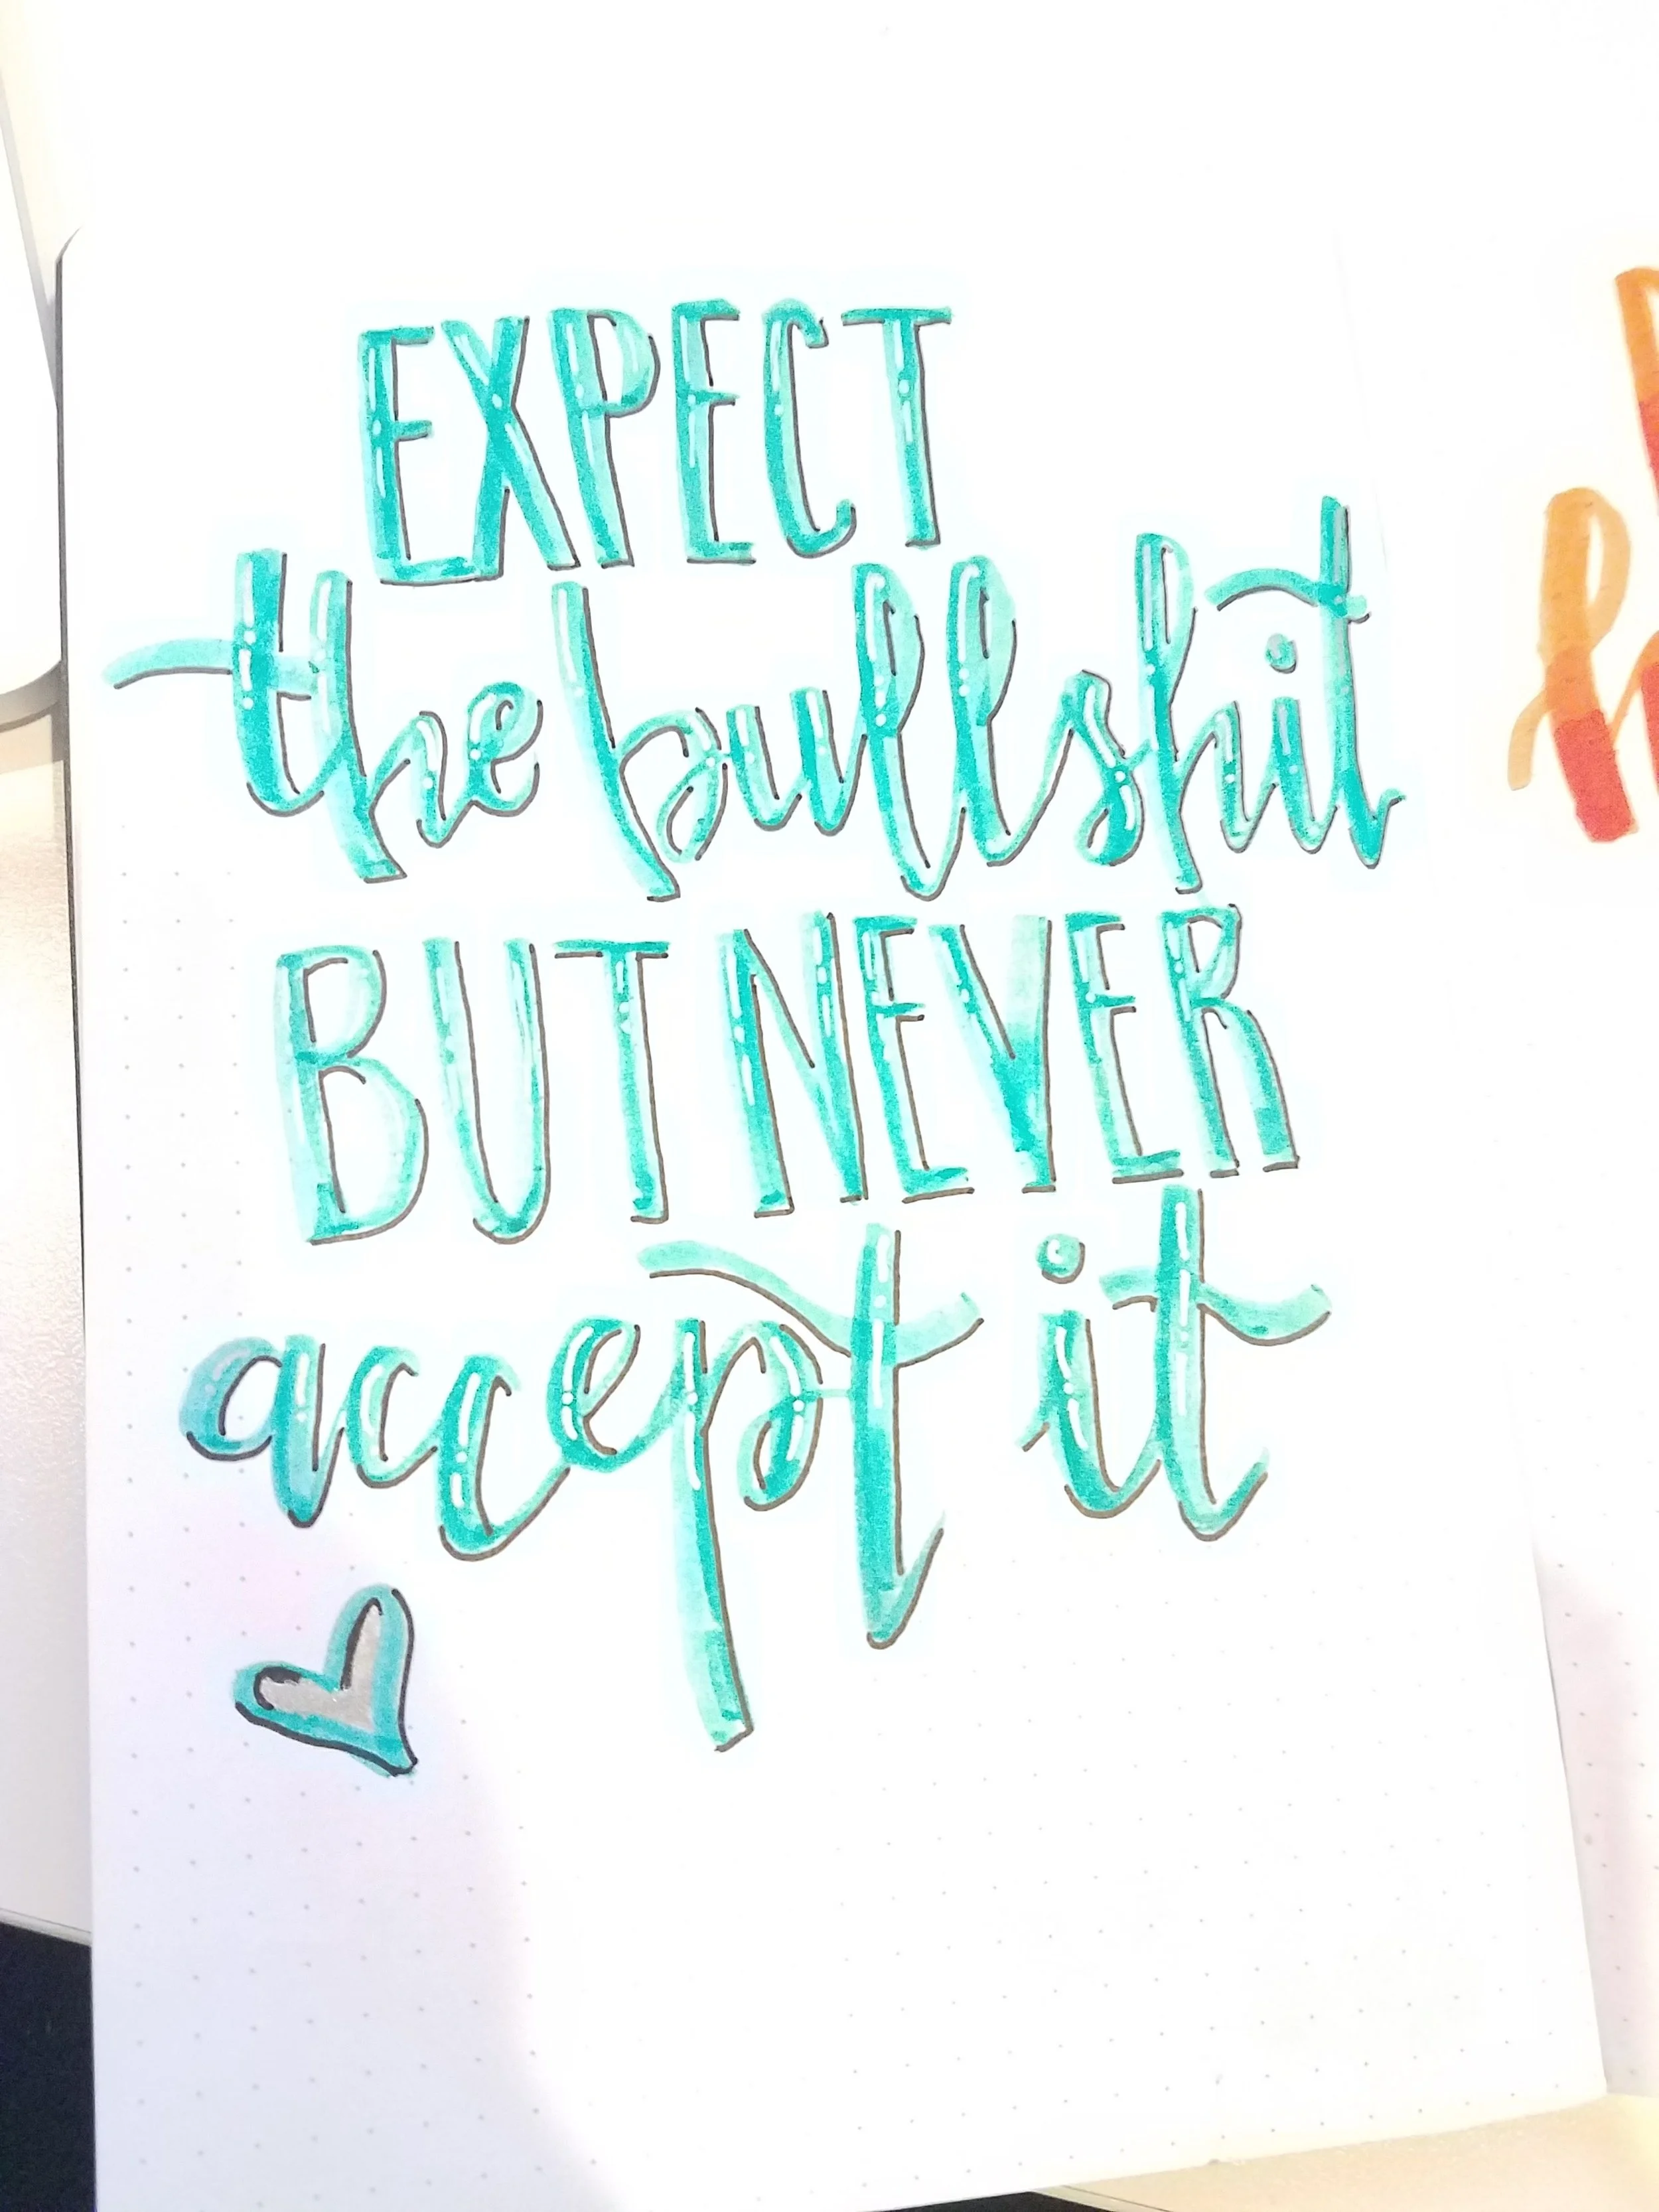 EXPECT
the bullshit
BUT NEVER
accept it